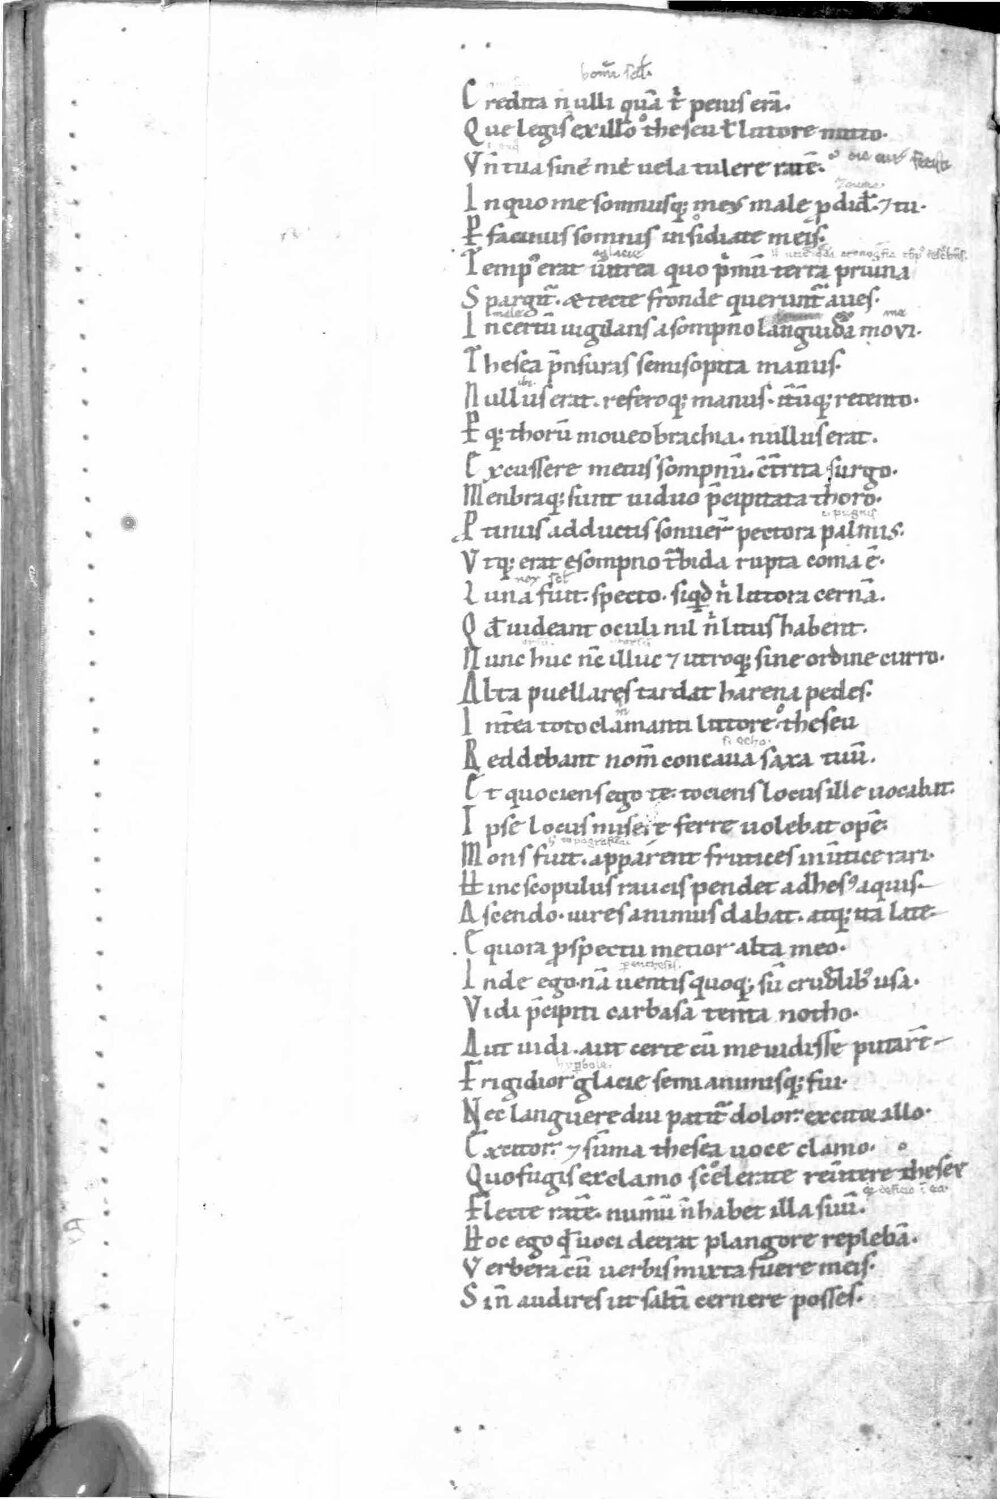 Credita nulli quā tͥ peius erā.
Que legis ex illo theseu tͥ litore mitto.
Vn̄ tua sine me uela tulere ratē.
In quo me somnusq; meꝰ male ꝓdid̄. ⁊ tu.
P facinus somnis insidiate meis.
Temp̄ erat uitrea quo pͥmū terra pruina
Spargit̄. ⁊ tecte fronde querunt̄ aues.
Incertū uigilans a sompno languida moui.
Thesea p̄nsuras semisopita manus.
Nullus erat. refero q; manus. it̄ūq; retento.
P q; thorū moueo brachia. nullus erat.
Excussere metus sompnū. ext̄rita surgo.
Menbraq; sunt uiduo p̄cipitata thoro.
Ptinus adductis sonuer̄ pectora palmis.
Vtq; erat e sompno t̄bida rupta coma ē.
Luna fuit. specto. siqͥd n̄ litora cernā.
Qd̄ uideant oculi nil n̄ litus habent.
Nunc huc nc̄ illuc ⁊ utroq; sine ordine curro.
Alta puellares tardat harena pedes.
Int̄ea toto clamanti litore theseu
Reddebant nom̄ concaua saxa tuū.
Et quociens ego te. tociens locus ille uocabat.
Ipse locus misere ferre uolebat opē.
Mons fuit. apparent frutices in ūtice rari.
Hinc scopulus raucis pendet adhesꝰ aquis.
Ascendo. uires animus dabat. atq; ita late.
Equora ꝓspectu metior alta meo.
Inde ego nā uentis quoq; sū crudͤlibꝰ usa.
Vidi p̄cipiti carbasa tenta notho.
Aut uidi. aut certe cū me uidisse putarē
Frigidior glacie semianimisq; fui.
Nec languere diu patit̄ dolor. excitor illo.
Excitor. ⁊ sūma thesea uoce clamo.
Quo fugis exclamo scelerate reūtere theseu
Flecte ratē. num̄ū n̄ habet illa suū.
Hoc ego qd̄ uoci deerat plangore replebā.
Verbera cū uerbis mixta fuere meis.
Si n̄ audires ut saltī cernere posses.